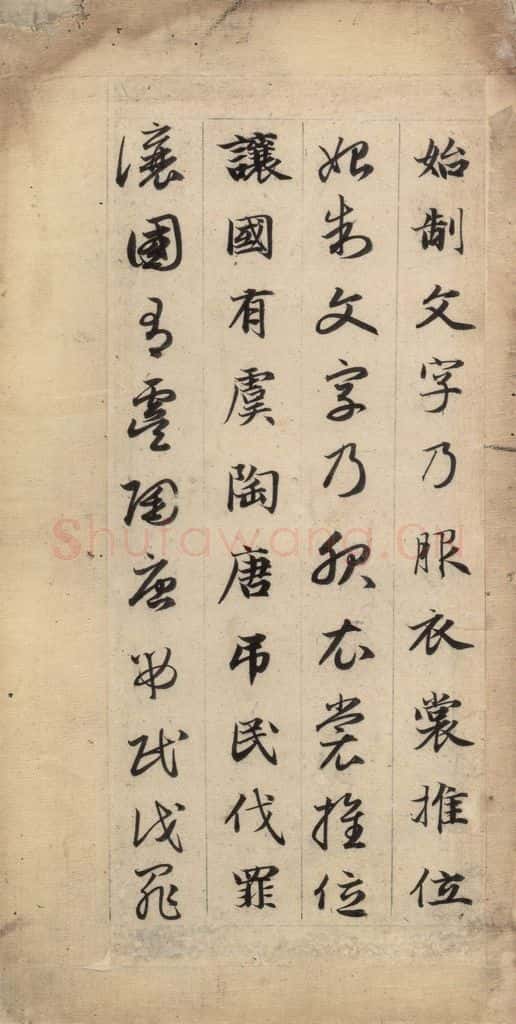 始制文字乃服衣裳推位
始制文字乃服衣裳推位
讓國有虞陶唐弔民伐罪
讓國有虞陶唐弔民伐罪
Shufawang.Cn